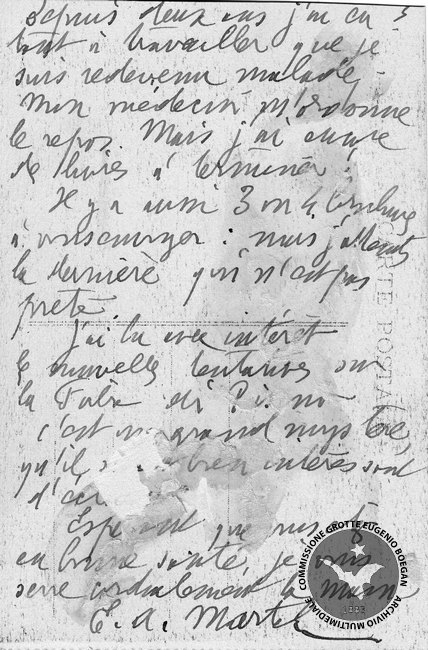 depuis deux ans j'ai eu
tant à travailler que je
suis redevenu malade
Mon médecin m'ordonne
le repos. Mais j'ai encore
de livres à terminer.
Il y a aussi 3 ou 4 brochures
à vous envoyer : mais j'attends
la dernière qui n'est pas
prete
J'ai lu avec intérêt
le nouvelles tentatives sur
la Foiba di Pisino
c'est un grand mystère,
qu'il bien intéressant
d'
Espérant que vous
en bonne santé, je vous
serre cordialement la main
E. A. Martel
CARTE POSTALE
COMMISSIONE GROTTE EUGENIO BOEGAN
ARCHIVIO MULTIMEDIALE
1893